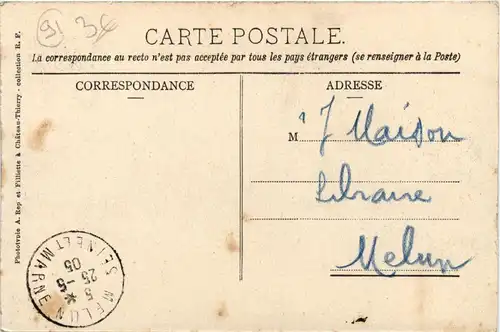 (91) 34
CARTE POSTALE.
La correspondance au recto n'est pas acceptée par tous les pays étrangers (se renseigner à la Poste)
CORRESPONDANCE
ADRESSE
M J Maison
Libraire
Melun
Phototypie A. Rep et Filliette à Château-Thierry - collection R. F.
MELUN
SEINE ET MARNE
5
25-5
05